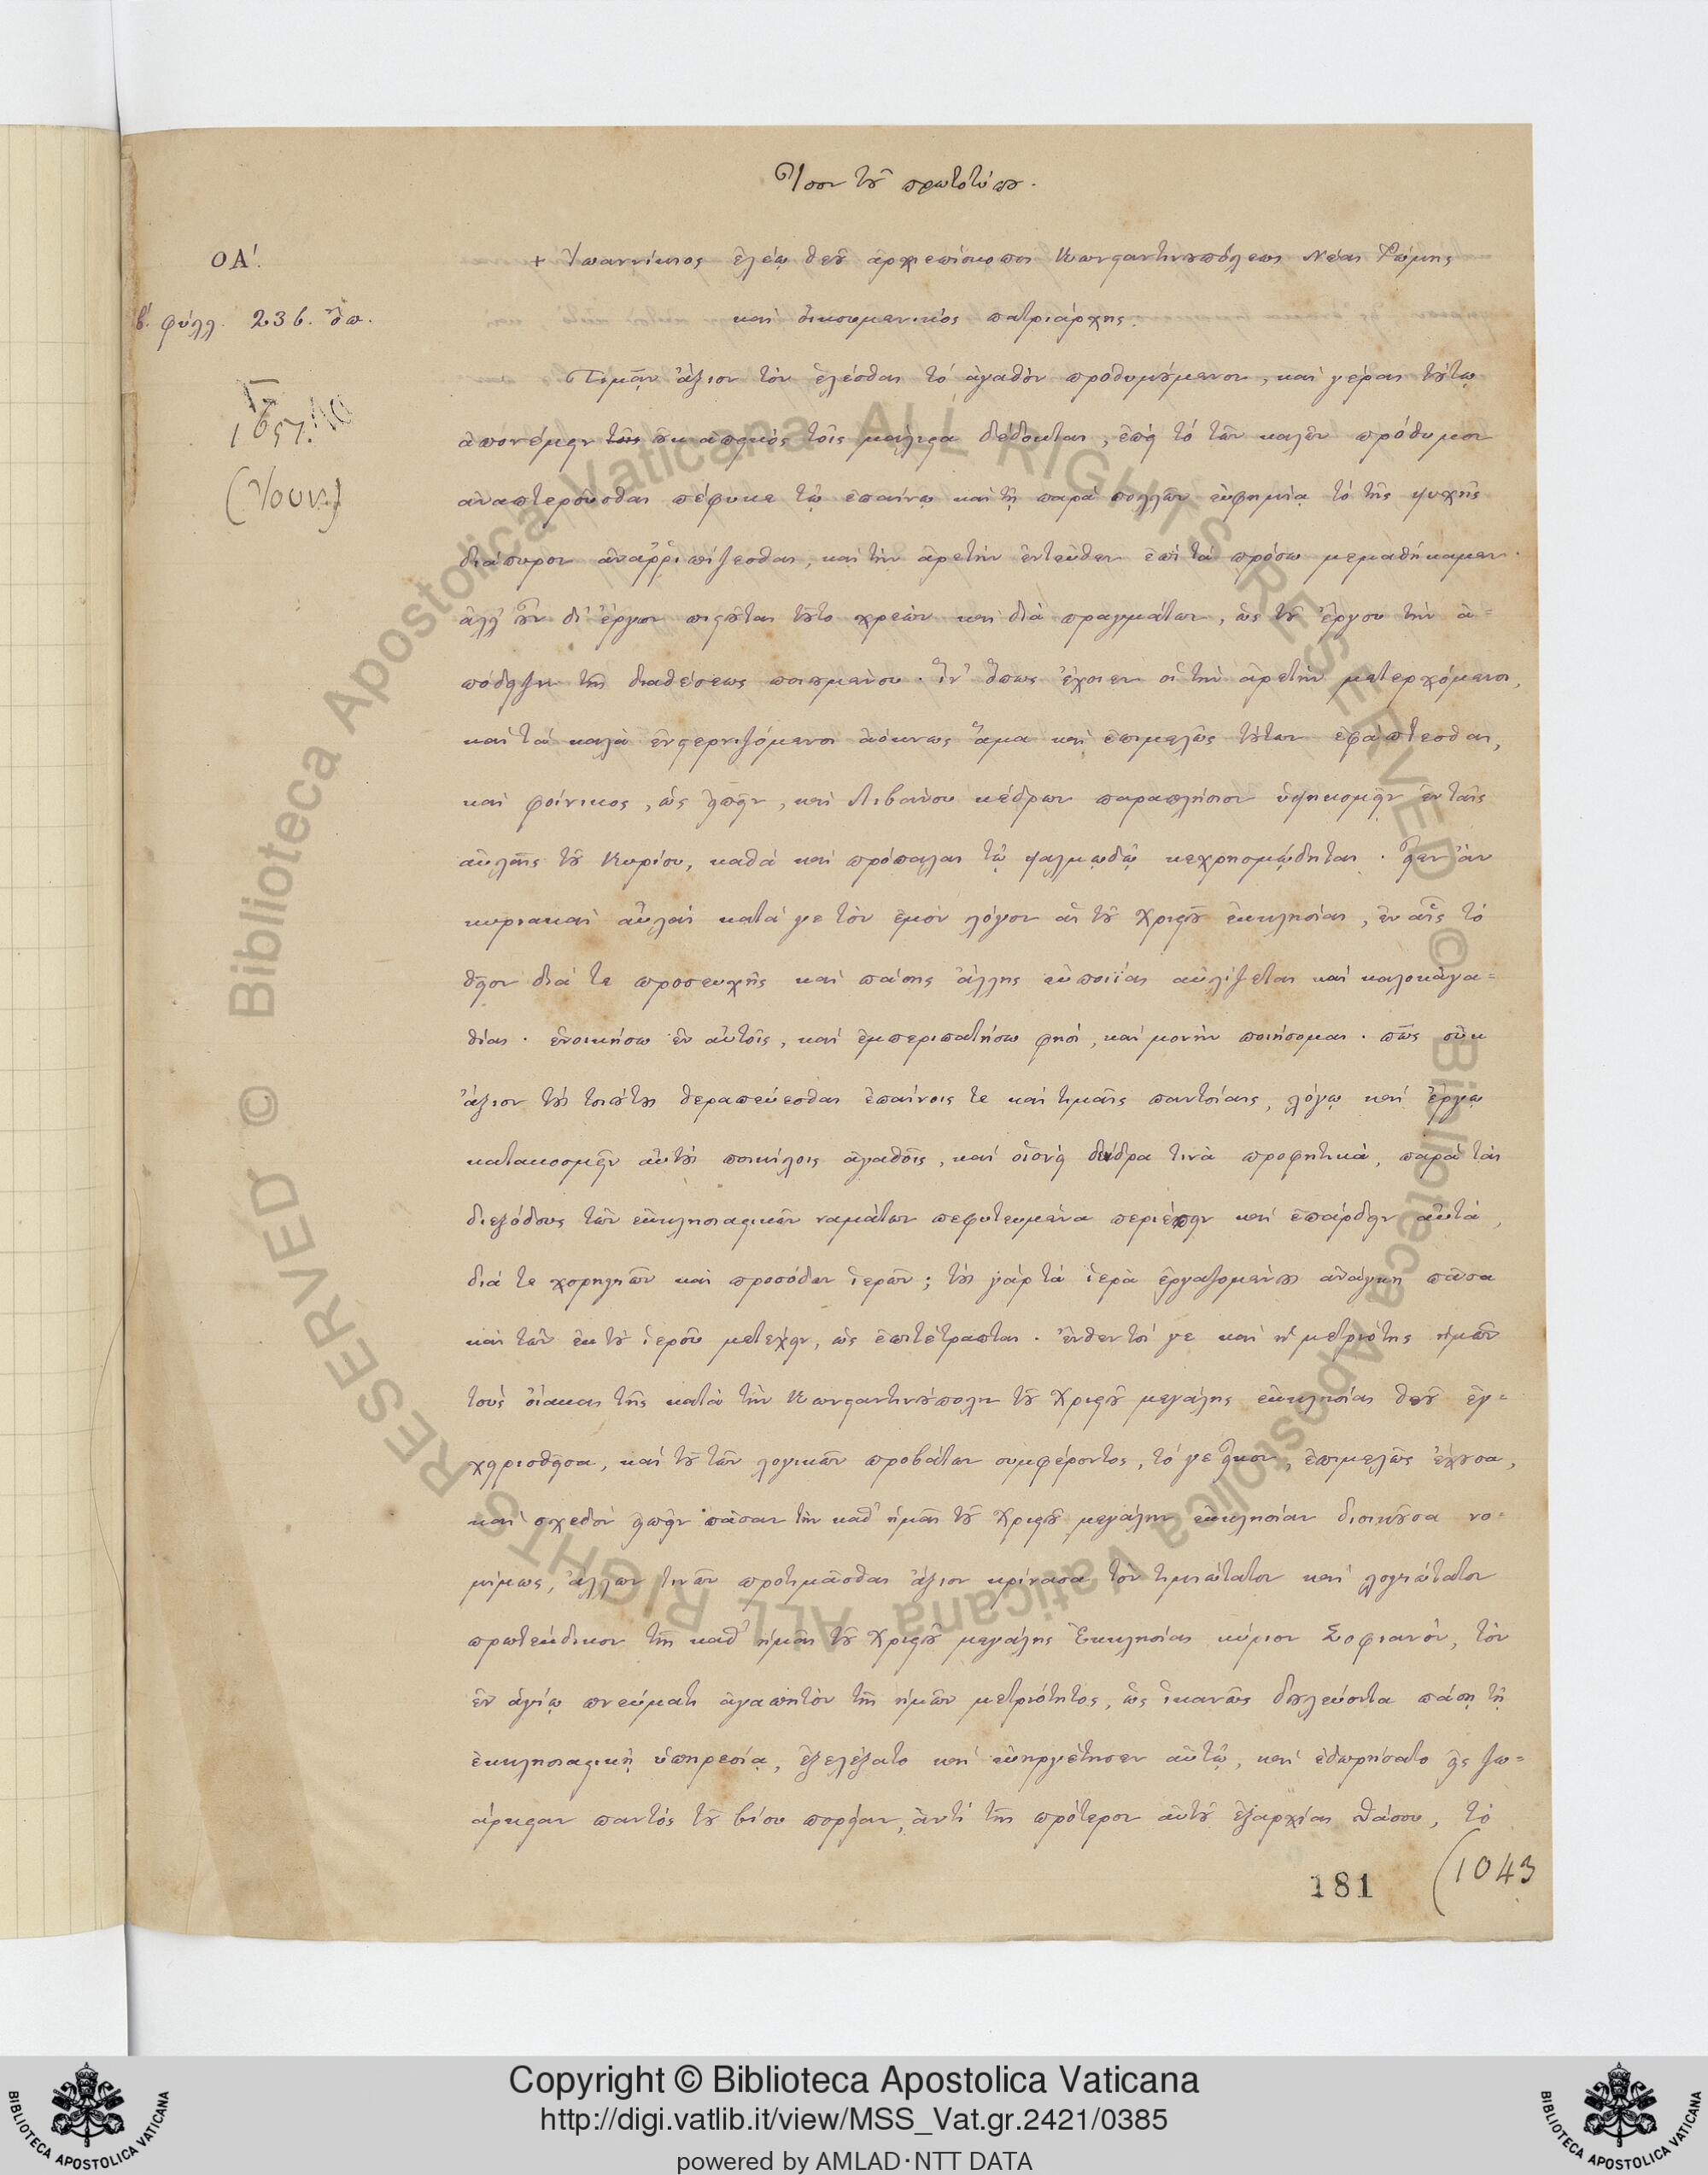 Ἴσον τοῦ πρωτοτύπου.
ΟΑ΄.
β. φύλλ. 236. ὄπ.
1651.
(Ἰουν.)
+ Ἰωαννίκιος ἐλέῳ θεοῦ ἀρχιεπίσκοπος Κωνσταντινουπόλεως Νέας Ῥώμης
καὶ οἰκουμενικὸς πατριάρχης.
Τιμᾶν ἄξιον τὸν ἑλέσθαι τὸ ἀγαθὸν προθυμούμενον, καὶ γέρας τούτῳ
ἀπονέμειν οὐκ ἀπεικὸς τοῖς μάλιστα δέδοκται, ἐπεὶ τὸ τῶν καλῶν πρόθυμον
ἀναπτεροῦσθαι πέφυκε τῷ ἐπαίνῳ καὶ τῇ παρὰ πολλῶν εὐφημίᾳ τὸ τῆς ψυχῆς
διάπυρον ἀναῤῥιπίζεσθαι, καὶ τὴν ἀρετὴν ἐντεῦθεν ἐπὶ τὰ πρόσω μεμαθήκαμεν.
ἀλλ' οὖν δι' ἔργων πιστοῦται τοῦτο χρεὼν καὶ διὰ πραγμάτων, ὡς τοῦ ἔργου τὴν ἀ-
πόδειξιν τῆς διαθέσεως ποιουμένου. ἵν' ὅπως ἔχοιεν οἱ τὴν ἀρετὴν μετερχόμενοι,
καὶ τὰ καλὰ ἐνστερνιζόμενοι ἀόκνως ἅμα καὶ ἐπιμελῶς τούτων ἐφάπτεσθαι,
καὶ φοίνικος, ὡς εἰπεῖν, καὶ Λιβάνου κέδρων παραπλήσιον ὑψηκομεῖν ἐν ταῖς
αὐλαῖς τοῦ Κυρίου, καθὰ καὶ πρόπαλαι τῷ ψαλμῳδῷ κεχρησμῴδηται. εἶεν ἂν
κυριακαὶ αὐλαὶ κατά γε τὸν ἐμὸν λόγον αἱ τοῦ Χριστοῦ ἐκκλησίαι, ἐν αἷς τὸ
θεῖον διά τε προσευχῆς καὶ πάσης ἄλλης εὐποιΐας αὐλίζεται καὶ καλοκἀγα-
θίας. ἐνοικήσω ἐν αὐτοῖς, καὶ ἐμπεριπατήσω φησὶ, καὶ μονὴν ποιήσομαι. πῶς οὐκ
ἄξιον τοὺς τοιούτους θεραπεύεσθαι ἐπαίνοις τε καὶ τιμαῖς παντοίαις, λόγῳ καὶ ἔργῳ
κατακοσμεῖν αὐτοὺς ποικίλοις ἀγαθοῖς, καὶ οἱονεὶ δένδρα τινὰ προφητικὰ, παρὰ τὰς
διεξόδους τῶν ἐκκλησιαστικῶν ναμάτων πεφυτευμένα περιέπειν καὶ ἐπάρδειν αὐτὰ,
διά τε χορηγιῶν καὶ προσόδων ἱερῶν; τοὺς γὰρ τὰ ἱερὰ ἐργαζομένους ἀνάγκη πᾶσα
καὶ τῶν ἐκ τοῦ ἱεροῦ μετέχειν, ὡς ἐπιτέτραπται. ἔνθεν τοί γε καὶ ἡ μετριότης ἡμῶν
τοὺς οἴακας τῆς κατὰ τὴν Κωνσταντινούπολιν τοῦ Χριστοῦ μεγάλης ἐκκλησίας θεοῦ ἐγ-
χειρισθεῖσα, καὶ τοῦ τῶν λογικῶν προβάτων συμφέροντος, τό γε εἰκὸν, ἐπιμελῶς ἔχουσα,
καὶ σχεδὸν εἰπεῖν πᾶσαν τὴν καθ' ἡμᾶς τοῦ Χριστοῦ μεγάλην ἐκκλησίαν διοικοῦσα νο-
μίμως, ἄλλων τινῶν προτιμᾶσθαι ἄξιον κρίνασα τὸν τιμιώτατον καὶ λογιώτατον
πρωτέκδικον τῆς καθ' ἡμᾶς τοῦ Χριστοῦ μεγάλης Ἐκκλησίας κύριον Σοφιανὸν, τὸν
ἐν ἁγίῳ πνεύματι ἀγαπητὸν τῆς ἡμῶν μετριότητος, ὡς ἱκανῶς δουλεύοντα πάσῃ τῇ
ἐκκλησιαστικῇ ὑπηρεσίᾳ, ἐξελέξατο καὶ εὐηργέτησεν αὐτῷ, καὶ ἐδωρήσατο εἰς ζω-
άρκειαν παντὸς τοῦ βίου πορείαν, ἀντὶ τῆς πρότερον αὐτοῦ ἐξαρχίας Θάσου, τὸ
181
(1043
Copyright © Biblioteca Apostolica Vaticana
http://digi.vatlib.it/view/MSS_Vat.gr.2421/0385
powered by AMLAD·NTT DATA